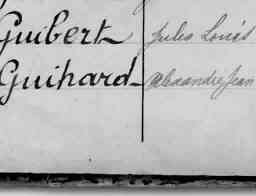 Guibert Jules Louis
Guihard Alexandre Jean